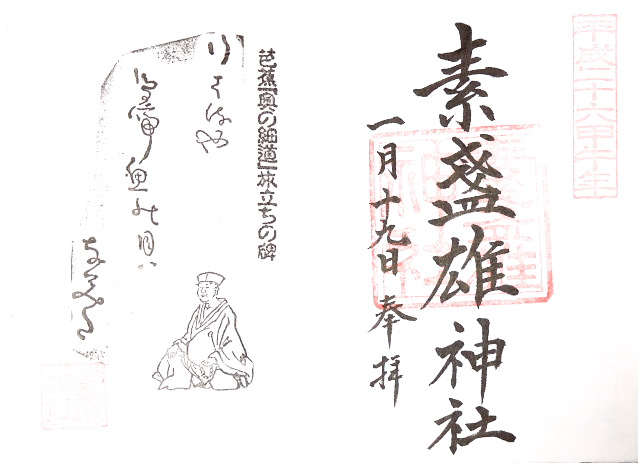 平成二十六甲午年
素盞雄神社
一月十九日 奉拝
芭蕉「奥の細道」旅立ちの碑
行くはるや
鳥啼魚の目は
なみだ